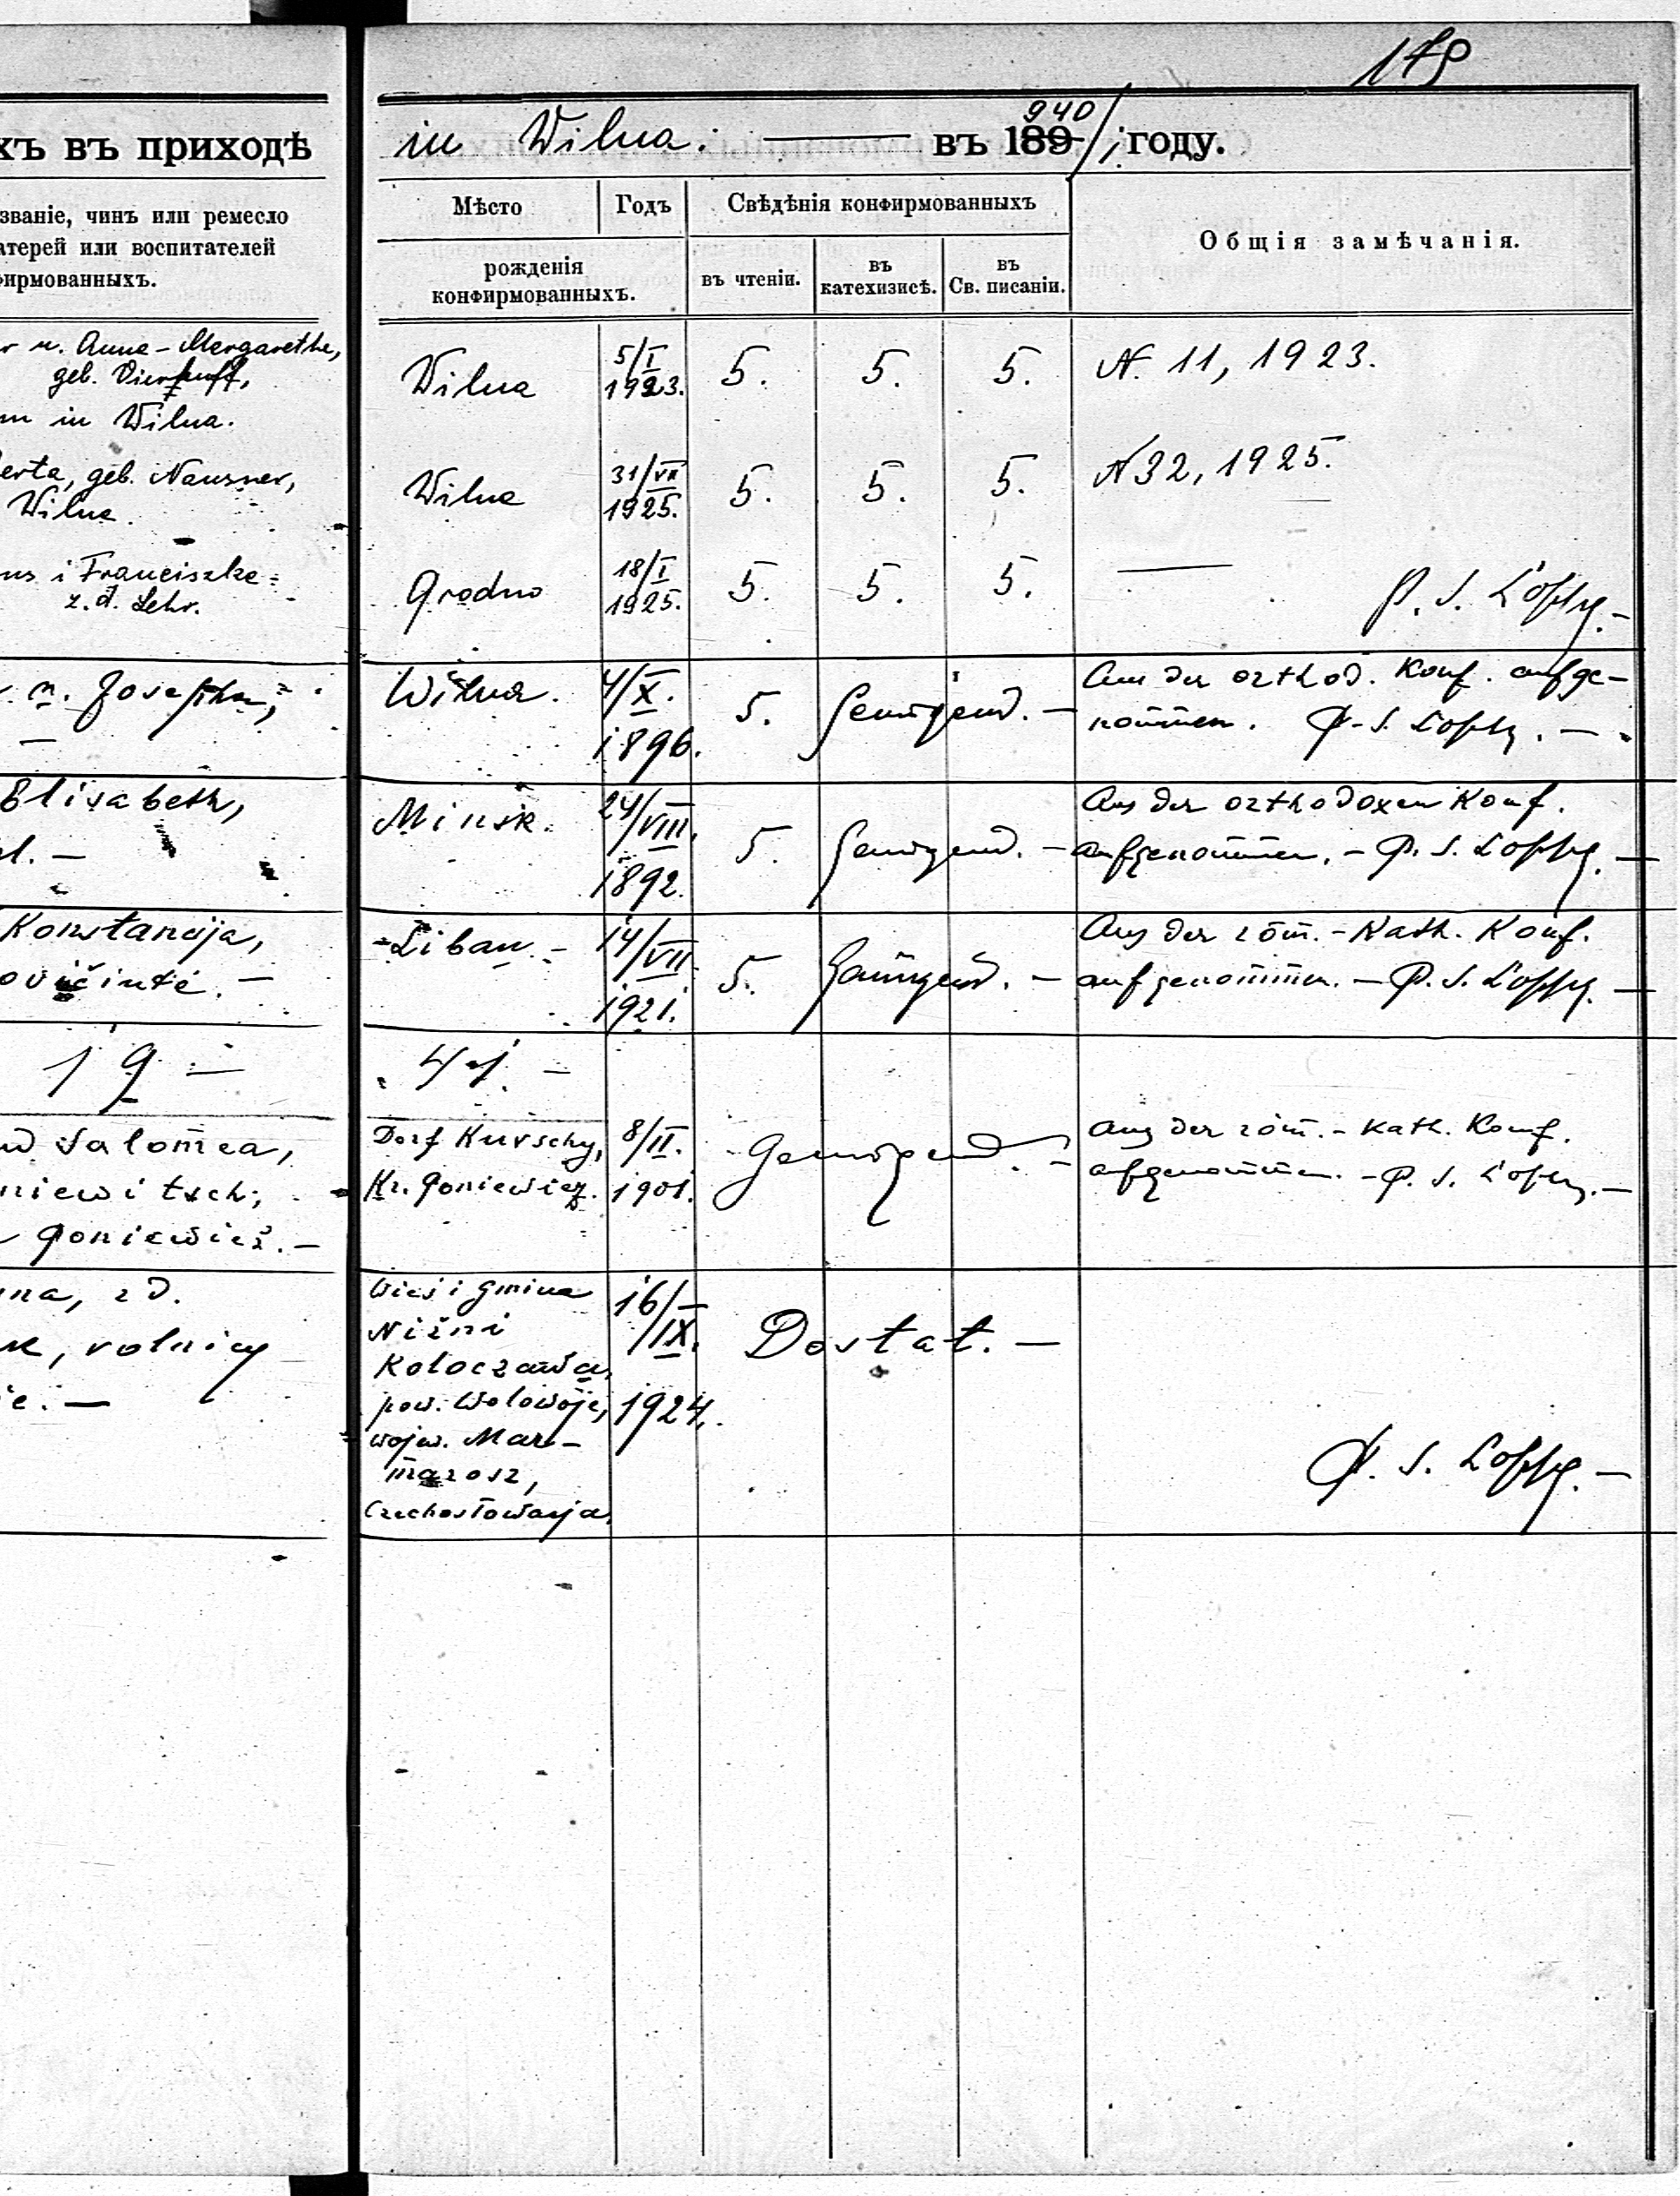 179
хъ въ приходѣ
званіе, чинъ или ремесло
атерей или воспитателей
фирмованныхъ.
r u. Anna-Margarethe,
geb. Vierhuff,
in Wilna.
erta, geb. Nausner,
Wilna.
ns i Franciszke
z. d. Lehr.
u. Josepha,
Elisabeth,
l. –
Konstancija,
ovičiutė. –
19 –
d Salomea,
niewitsch;
Poniewież. –
nna, z d.
k, rolnicy
ie. –
in Wilna. — въ 189 940/1. году.
Мѣсто Годъ Свѣдѣнія конфирмованныхъ
Общія замѣчанія.
рожденія
конфирмованныхъ.
въ чтеніи. въ катехизисѣ. въ Св. писаніи.
Wilna 5/I 1923. 5. 5. 5. N. 11, 1923.
Wilna 31/VII 1925. 5. 5. 5. N 32, 1925.
Grodno 18/I 1925. 5. 5. 5. —
P. S. Loppe. –
Wilna. 4/X. 1896. 5. Genügend. – Aus der orthod. Konf. aufge-
nommen. P. S. Loppe. –
Minsk. 24/VIII. 1892. 5. Genügend. – Aus der orthodoxen Konf.
aufgenommen. – P. S. Loppe. –
Libau. – 14/VII. 1921. 5. Genügend. – Aus der röm. - Kath. Konf.
aufgenommen. – P. S. Loppe. –
41. –
Dorf Kurschy, 8/II. Genügend. – Aus der röm. - Kath. Konf.
Kr. Poniewież. 1901. aufgenommen. – P. S. Loppe. –
Wieś i gmina 16/IX.
Niżni Dostat. –
Koloczawa,
pow. Wolowoje, 1924.
wojw. Mar-
marosz,
Czechosłowacja.
P. S. Loppe. –